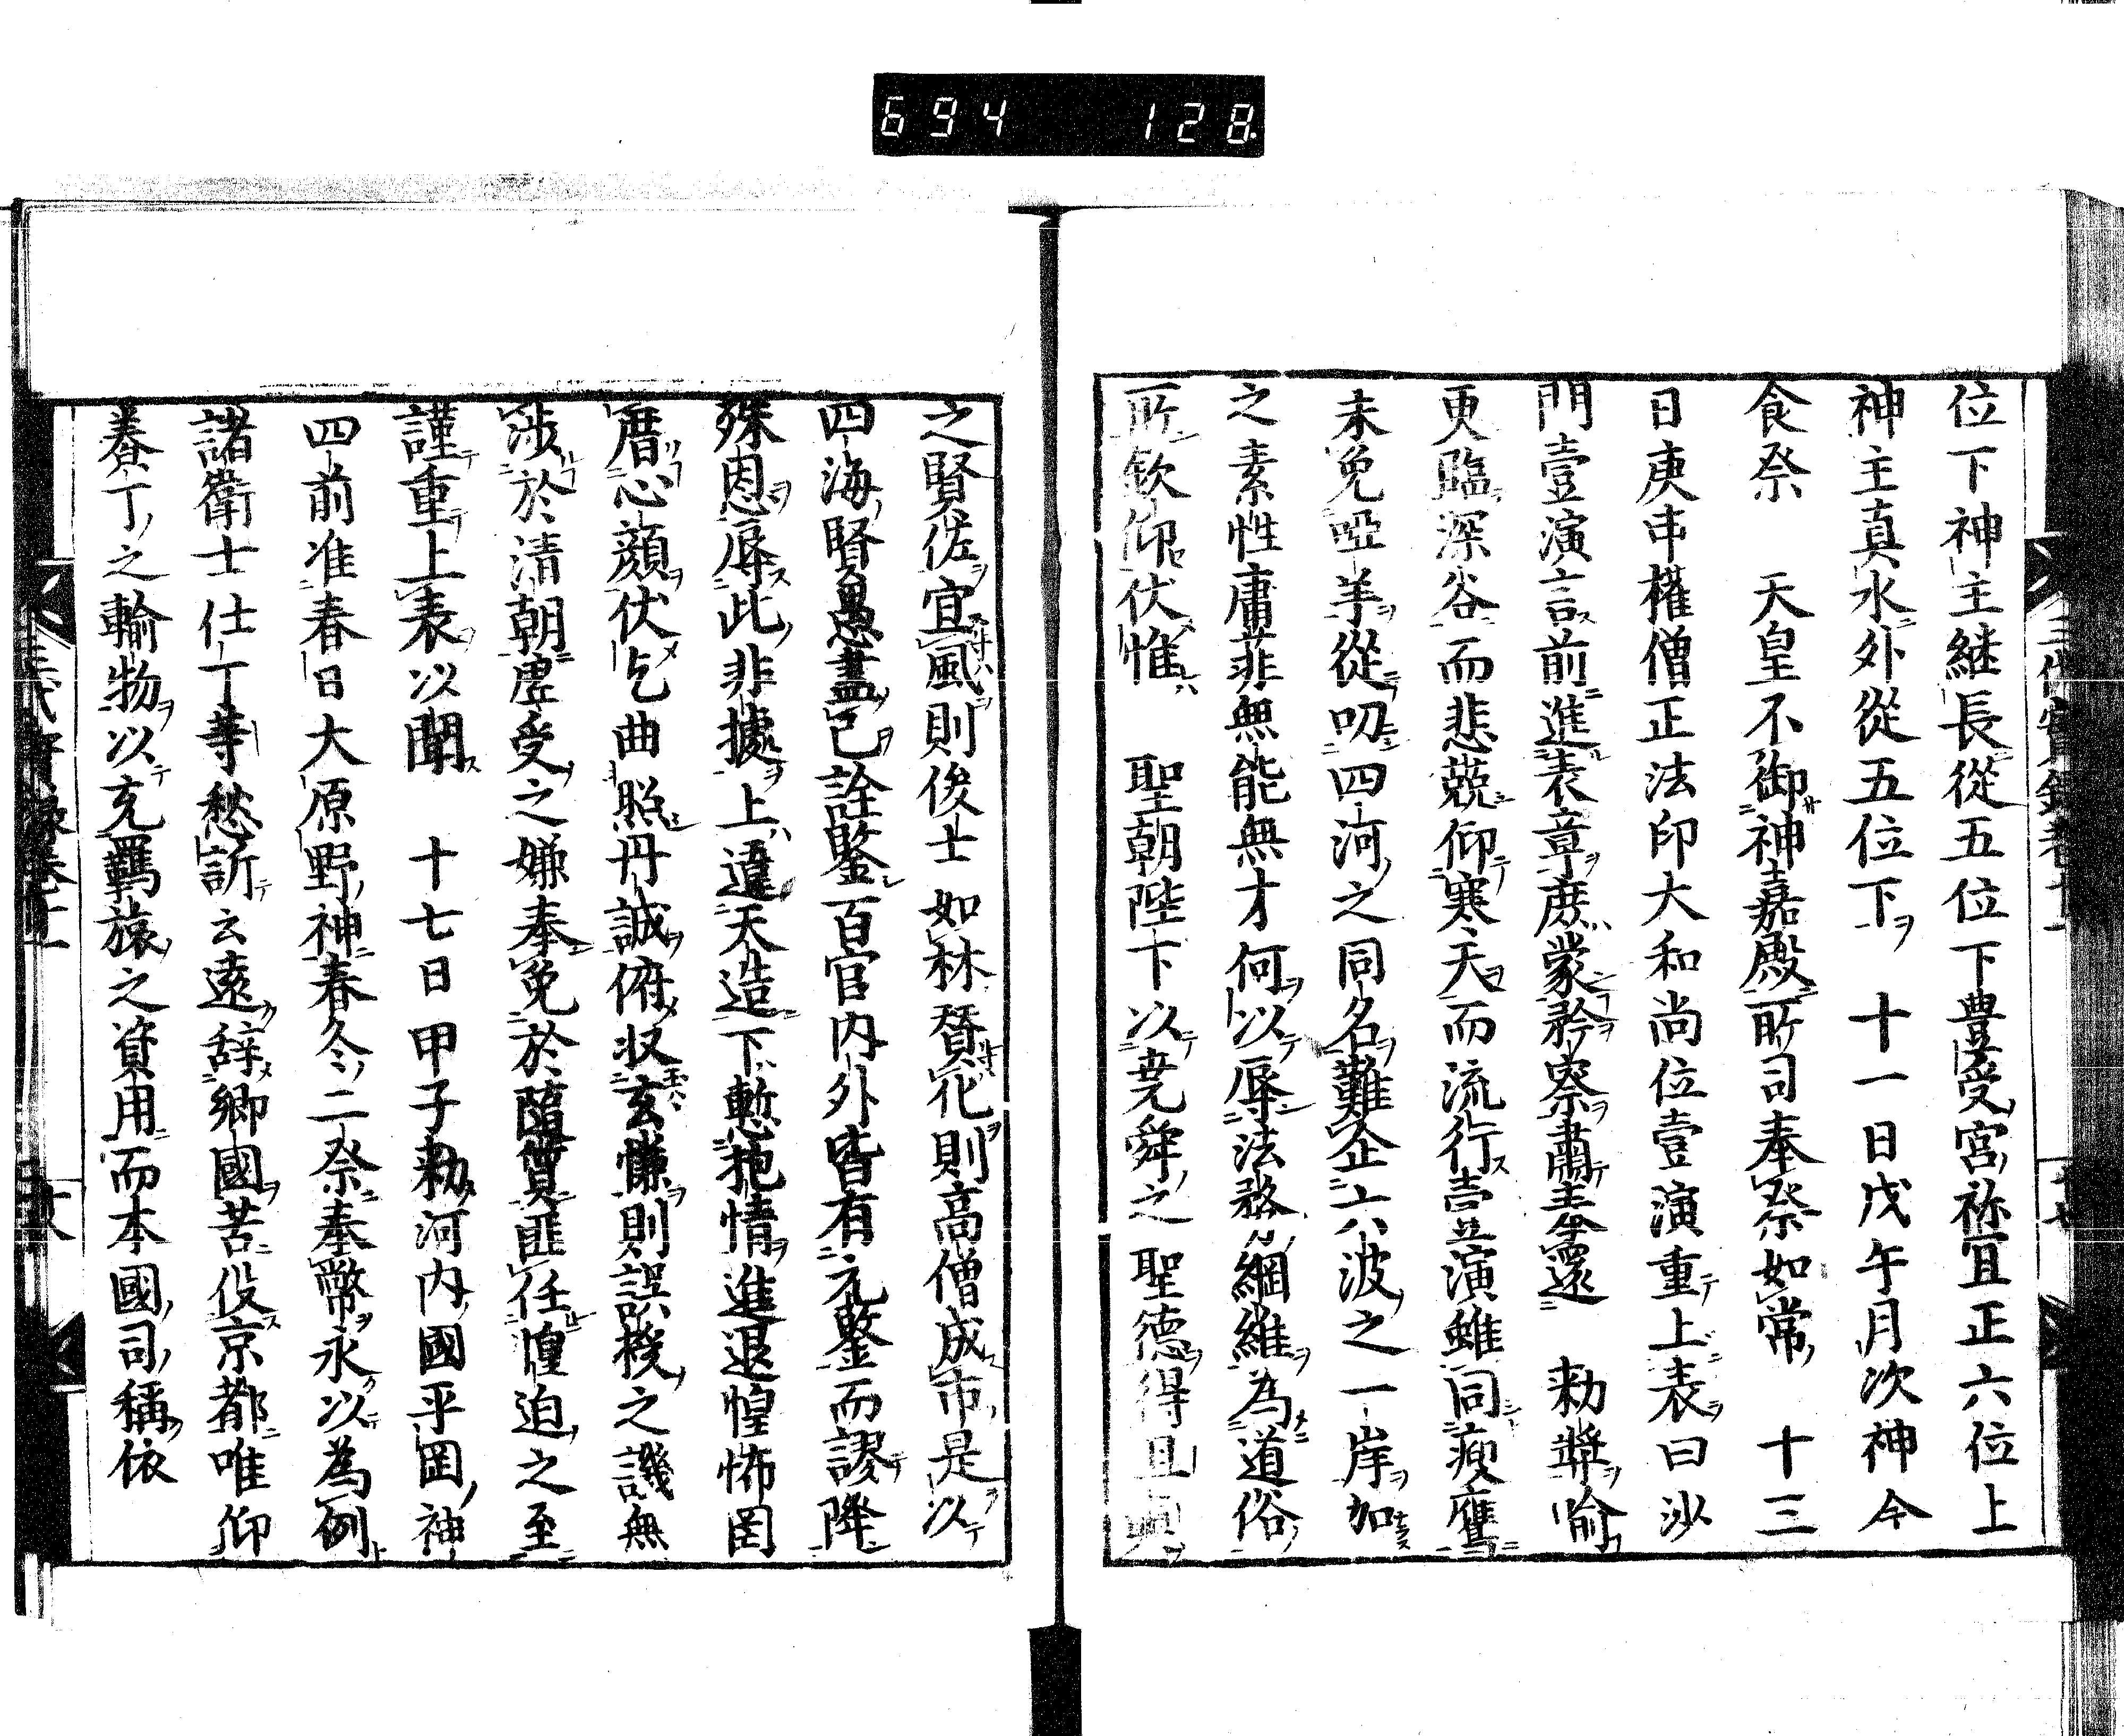 694 128
位下神主継長從五位下豊受宮祢冝正六位上
神主真水外從五位下十一日戊午月次神今
食祭 天皇不御神嘉殿所司奉祭如常 十三
日庚申權僧正法印大和尚位壹演重上表曰沙
門壹演言前進表章庶蒙矜察肅奉還 勅奨喻
更臨深谷而悲兢仰寒天而流行壹演雖同瘦鷹
未免啞羊從叨四河之同名難企六波之一岸加
之素性庸菲無能無才何以辱法務綱維為道俗
所欽仰伏惟 聖朝陛下以尭舜之聖德得
之賢佐宜風則俊士如林賛化則高僧成市是以
四海賢愚盡已詮鑒百官内外皆有元鑒而謬降
殊恩辱此非據上違天造下慙抱情進退惶怖罔
厝心顔伏乞曲照丹誠俯收玄慊則誤授之譏無
渉於清朝虚受之嫌奉免於隨資匪任惶迫之至
謹重上表以聞 十七日甲子勅河内國平岡神
四前准春日大原野神春冬二祭奉幣永以為例
諸衛士仕丁等愁訴云遠辞鄉國苦役京都唯仰
養丁之輸物以充羈旅之資用而本國司稱依
三代實録卷十一